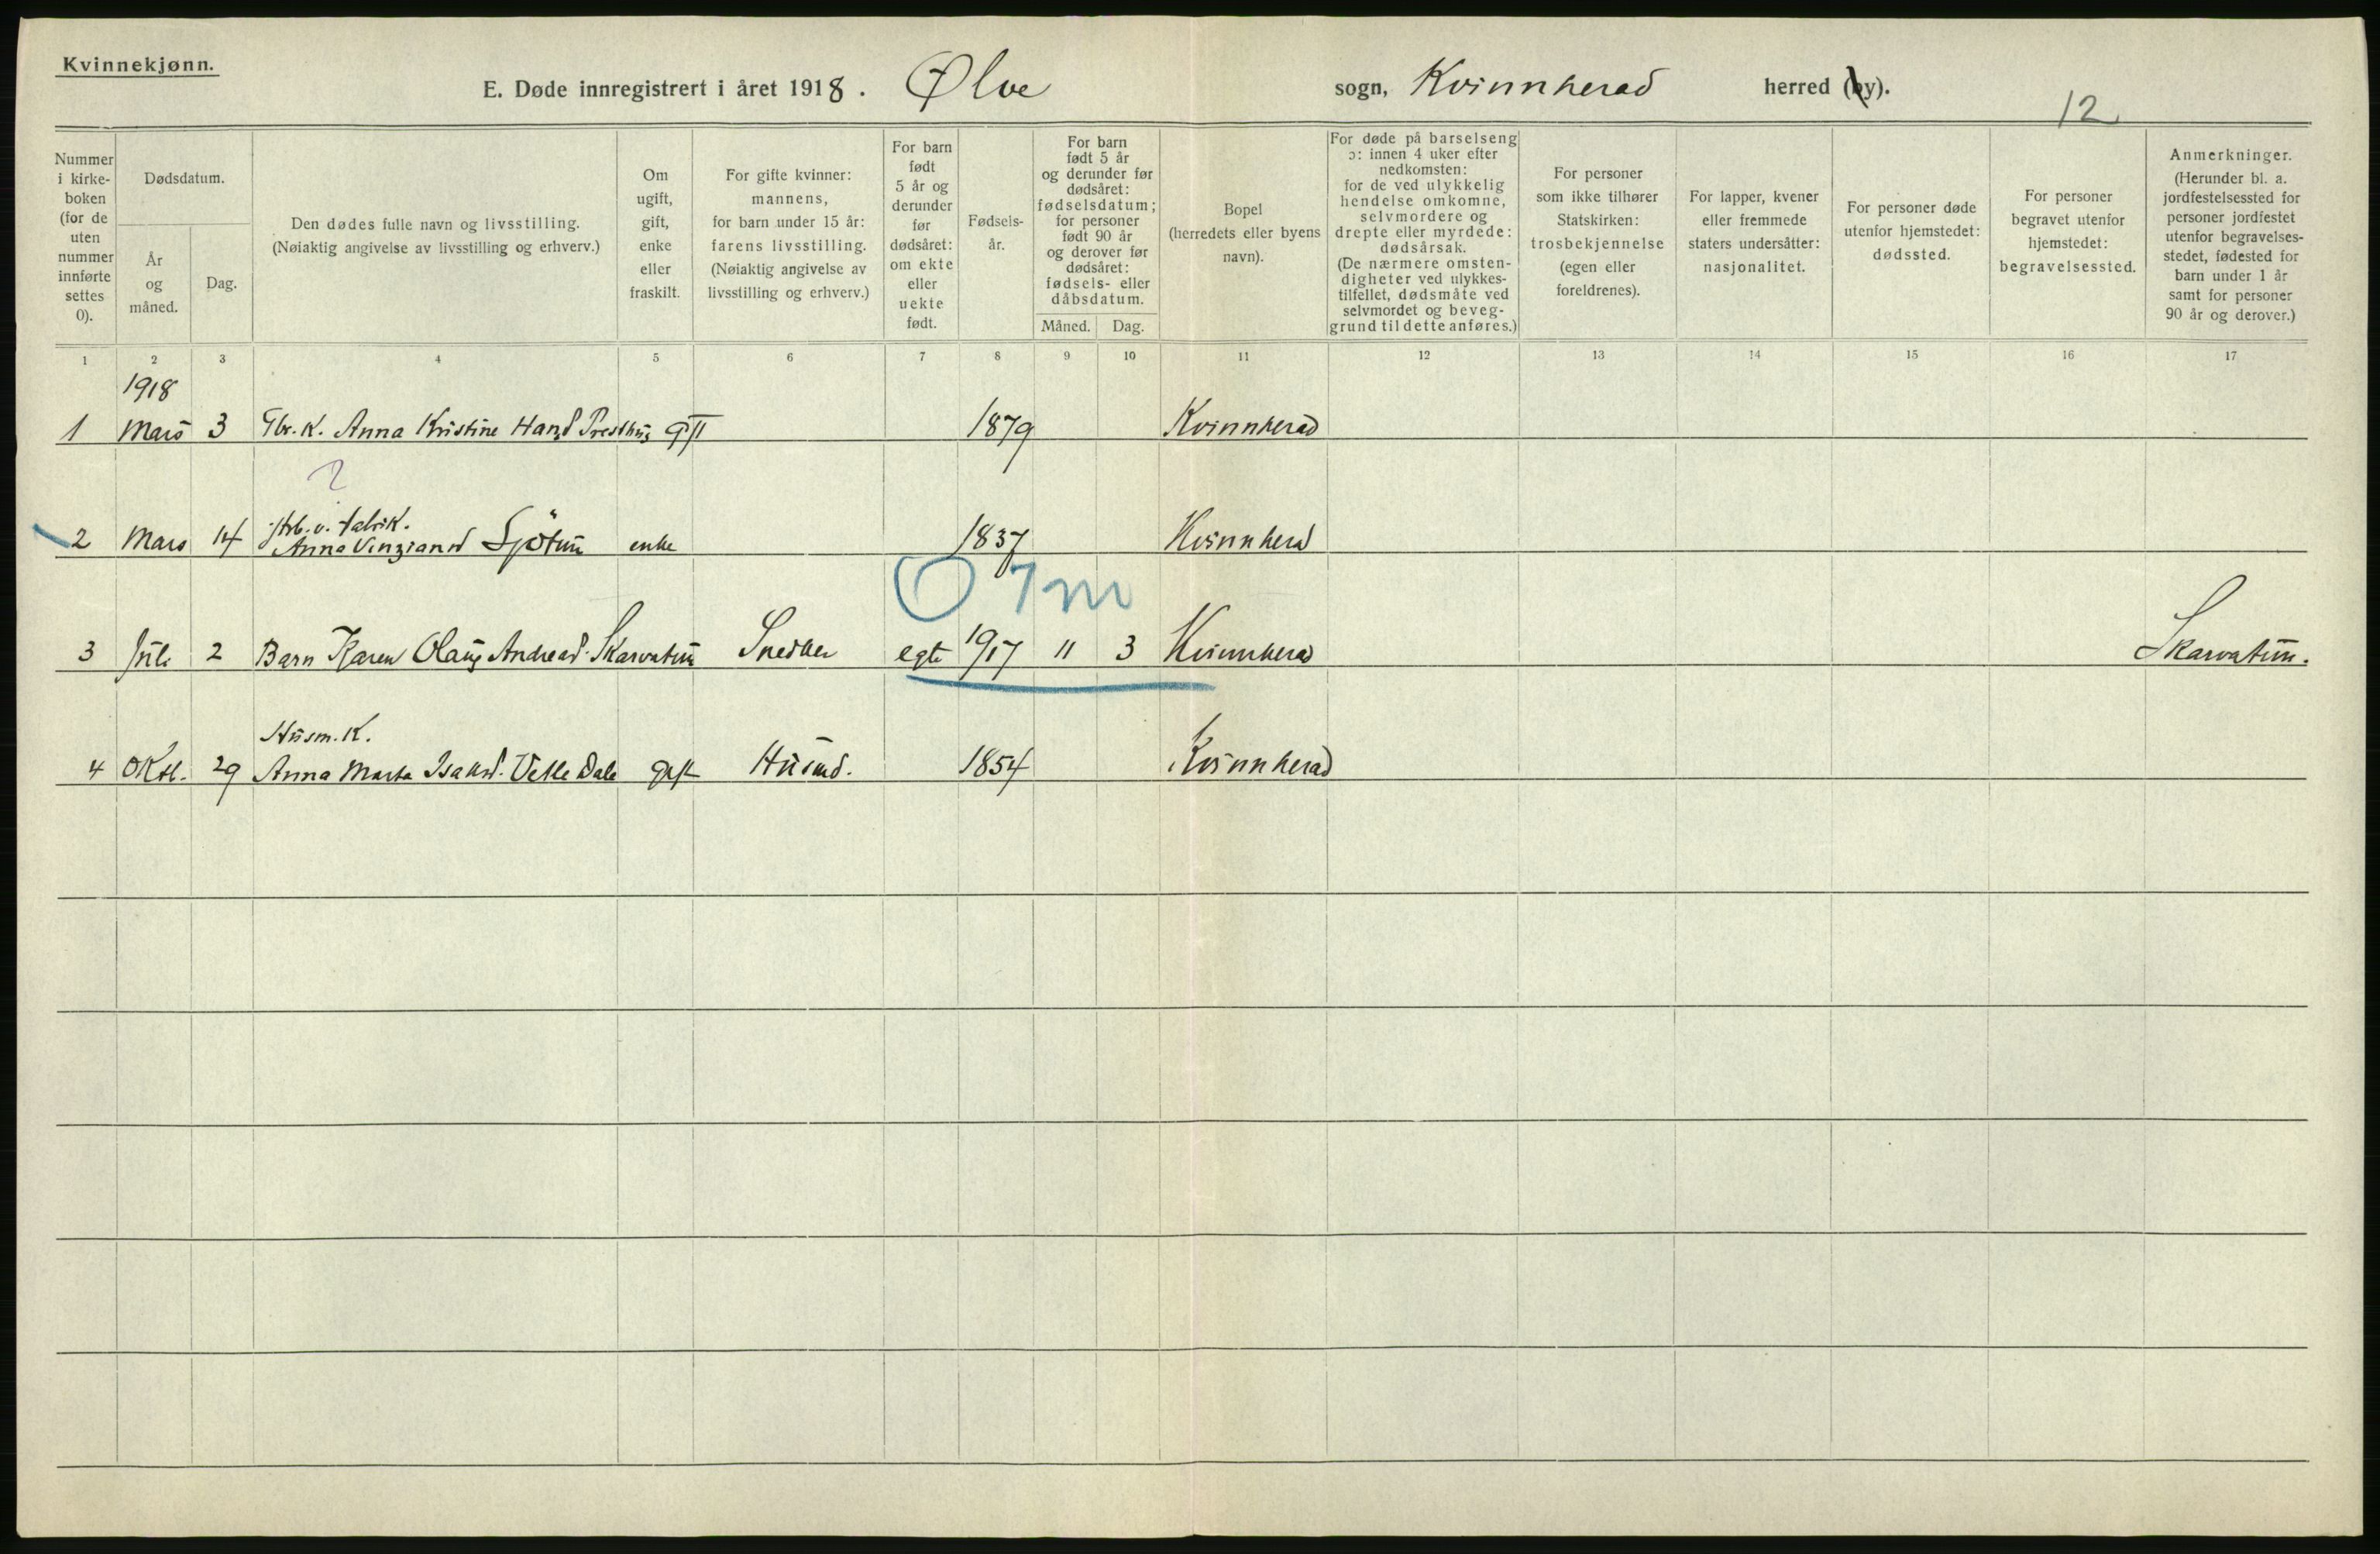 Kvinnekjønn.
E. Døde innregistrert i året 1918. Ølve sogn, Kvinnherad herred (by).
12
Nummer i kirke-boken (for de uten nummer innførte settes 0).
Dødsdatum.
År og måned.
Dag.
Den dødes fulle navn og livsstilling.
(Nøiaktig angivelse av livsstilling og erhverv.)
Om ugift, gift, enke eller fraskilt.
For gifte kvinner: mannens, for barn under 15 år: farens livsstilling. (Nøiaktig angivelse av livsstilling og erhverv.)
For barn født 5 år og derunder før dødsåret: om ekte eller uekte født.
Fødsels-år.
For barn født 5 år og derunder før dødsåret: fødselsdatum; for personer født 90 år og derover før dødsåret: fødsels- eller dåbsdatum.
Måned. Dag.
Bopel (herredets eller byens navn).
For døde på barselseng ɔ: innen 4 uker efter nedkomsten: for de ved ulykkelig hendelse omkomne, selvmordere og drepte eller myrdede: dødsårsak. (De nærmere omsten-digheter ved ulykkes-tilfellet, dødsmåte ved selvmordet og beveg-grund til dette anføres.)
For personer som ikke tilhører Statskirken: trosbekjennelse (egen eller foreldrenes).
For lapper, kvener eller fremmede staters undersåtter: nasjonalitet.
For personer døde utenfor hjemstedet: dødssted.
For personer begravet utenfor hjemstedet: begravelsessted.
Anmerkninger. (Herunder bl. a. jordfestelsessted for personer jordfestet utenfor begravelses-stedet, fødested for barn under 1 år samt for personer 90 år og derover.)
1 2 3 4 5 6 7 8 9 10 11 12 13 14 15 16 17
1918
1 Mars 3 Gbr. K. Anna Kristine Hansd Presthus gift 1879 Kvinnherad
?
arb. v. fabrik.
2 Mars 14 Anna Vinziansd Sjøtun enke 1837 Kvinnherad
0 7 m
3 Juli 2 Barn Karen Olaug Andreasd. Skarvatun Snedker egte 1917 11 3 Kvinnherad Skarvatun.
Husm. K.
4 Okt. 29 Anna Marta Isaksd. Vetle Dale gift Husmd. 1854 Kvinnherad